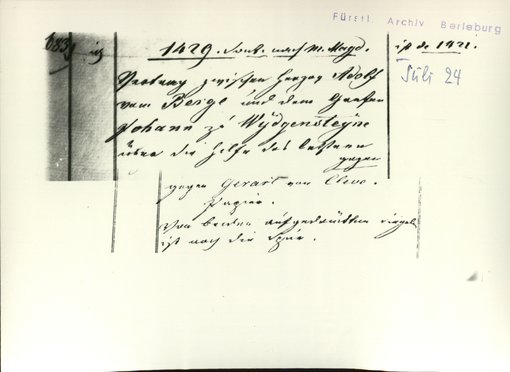 Fürstl. Archiv Berleburg
683
1429. Sont. nach M. Magd. ist de 1421.
Juli 24
Vertrag zwischen Herzog Adolf
vom Berge und dem Grafen
Johann zo Wydgensteyne
über die Hilfe des letztern
gegen
gegen Gerart von Cleve.
Papier.
Von beiden aufgedrückten Siegeln
ist noch die Spur.